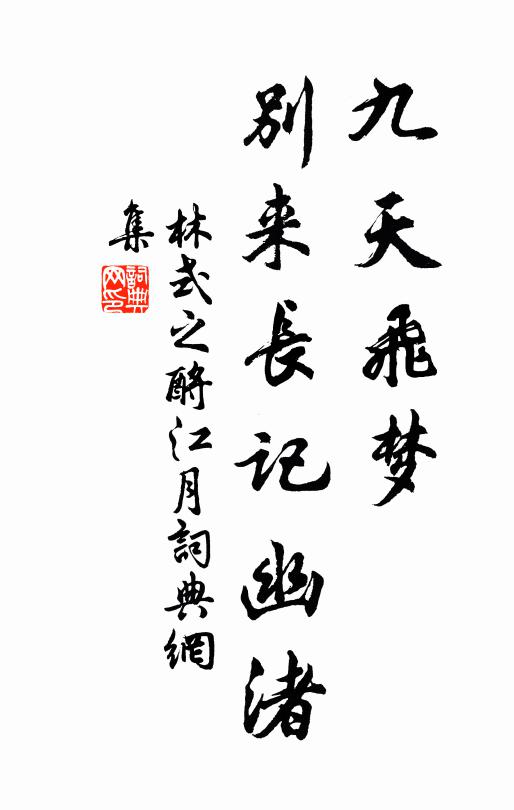 九天飛梦
別来長记幽渚
林式之酹江月詞典網
集
詞典网印